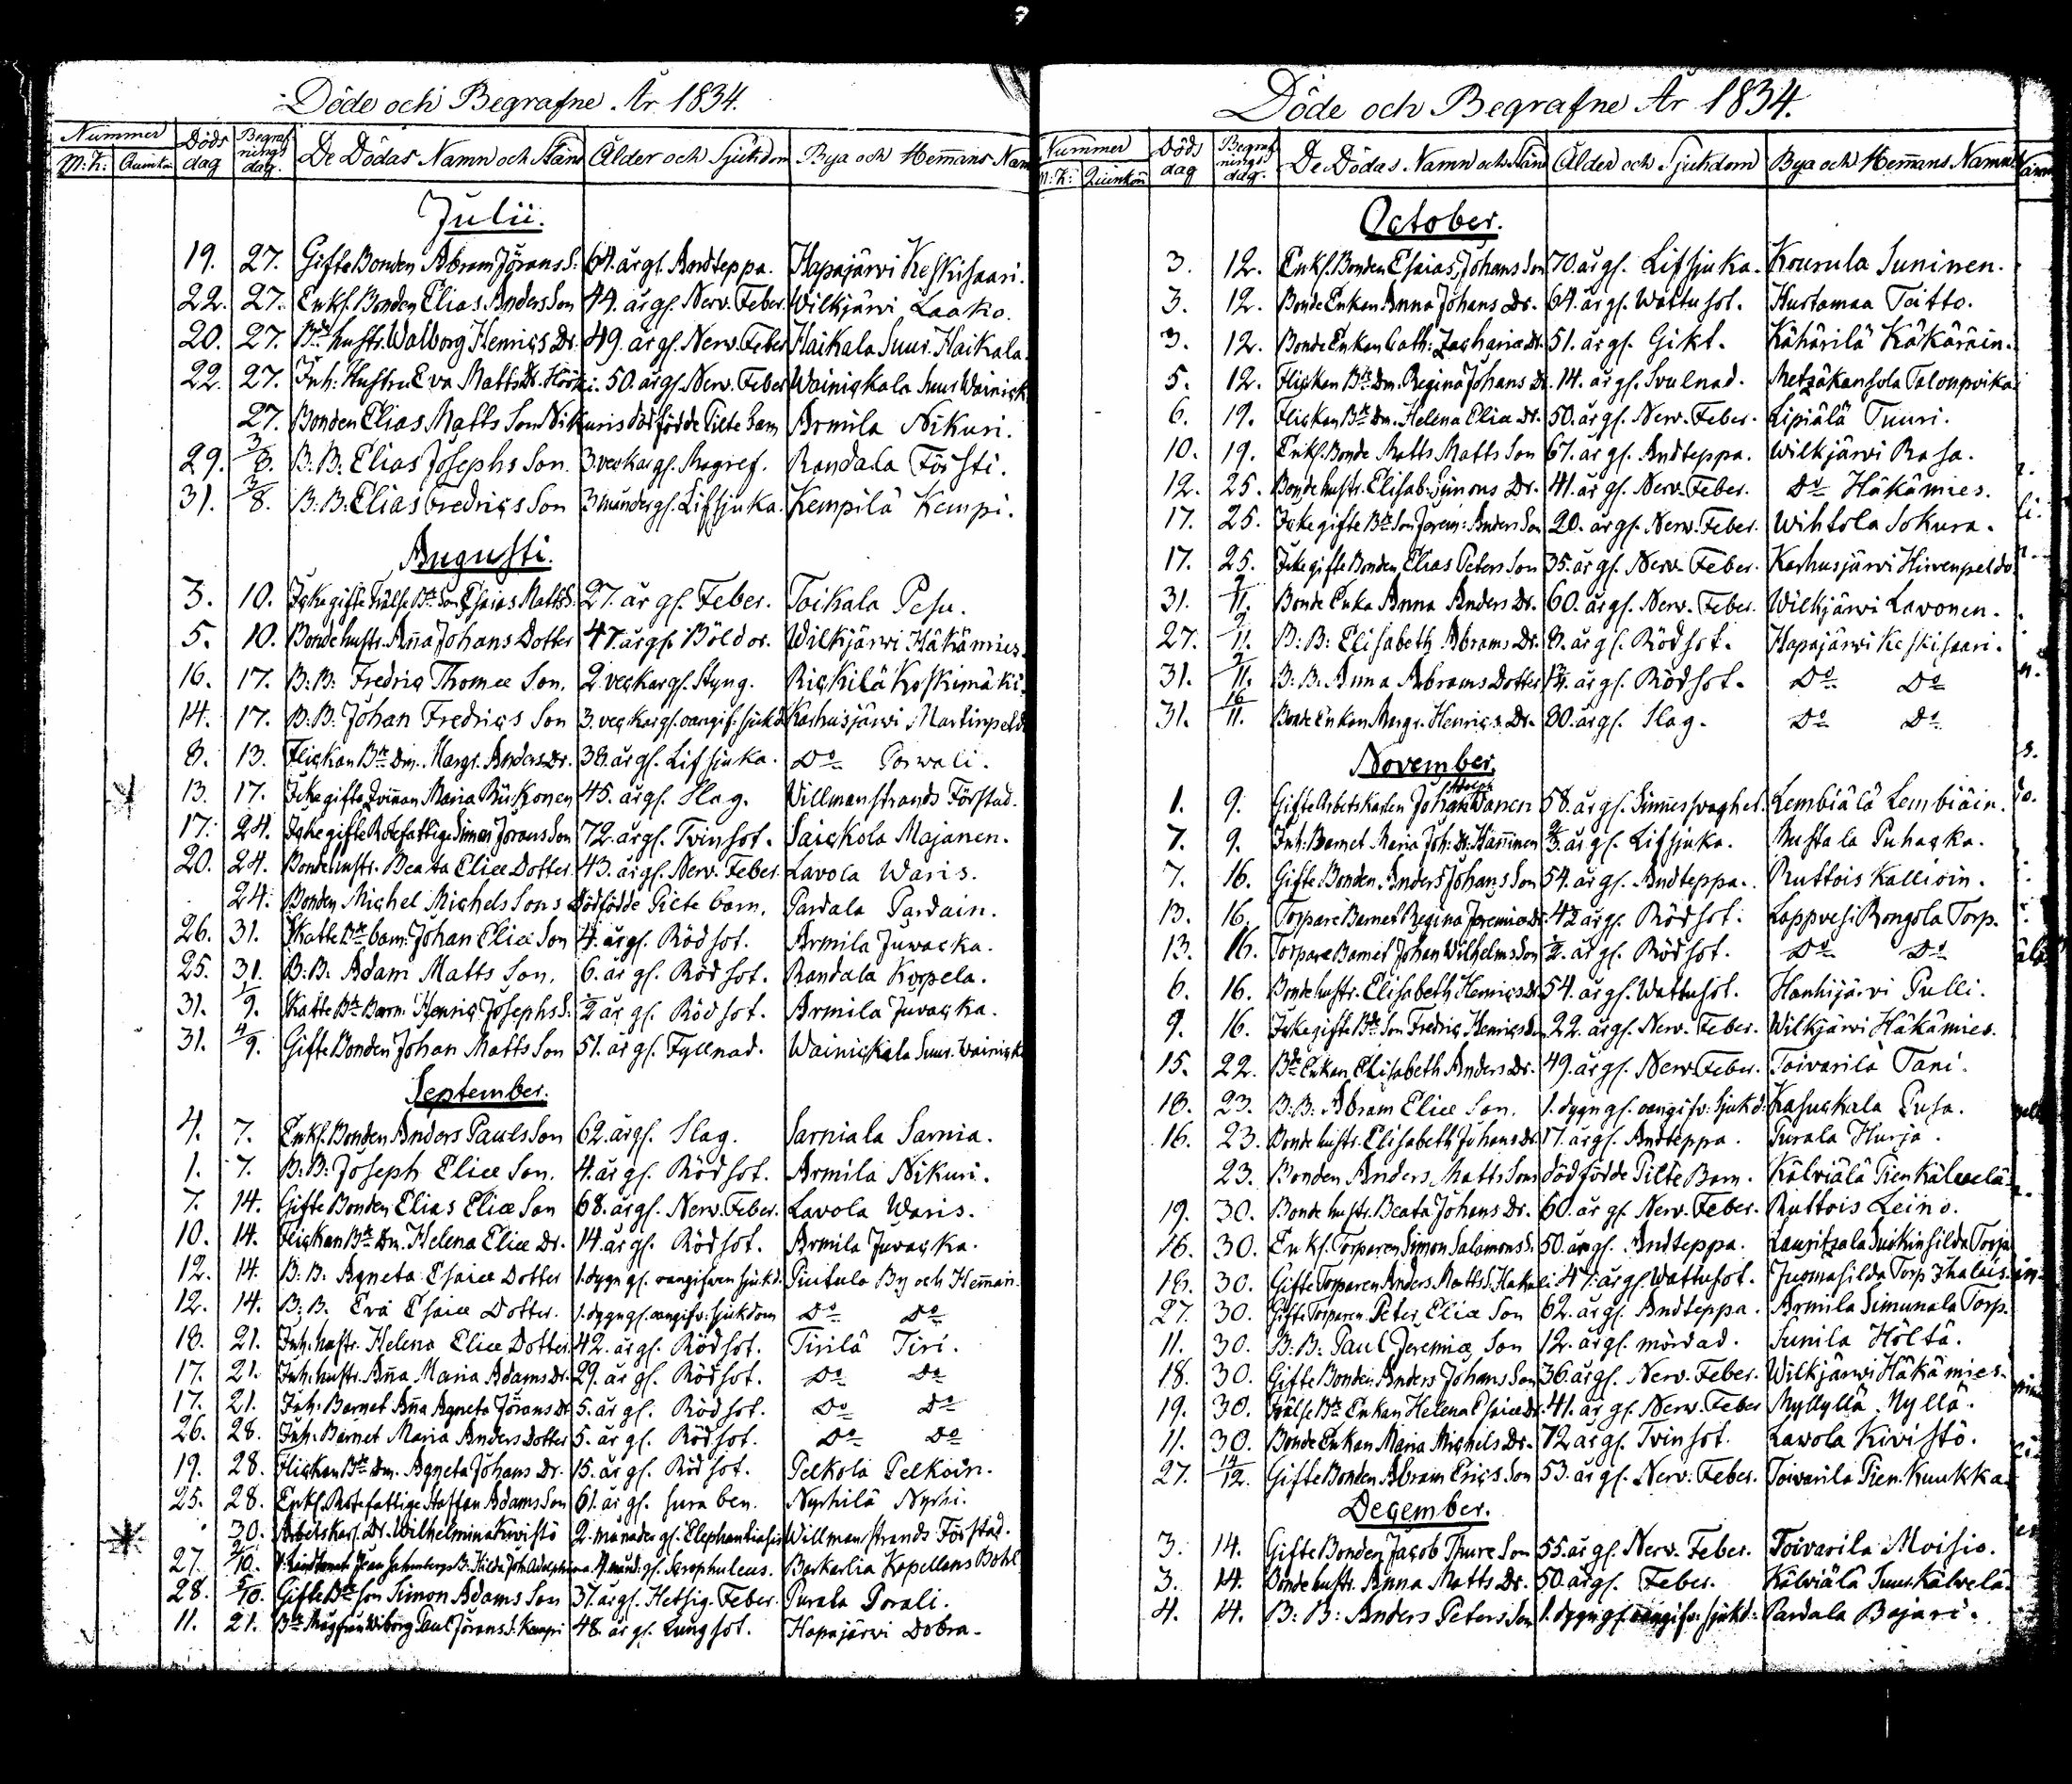 Döde och Begrafne År 1834.
Nummer Döds dag Begrafnings dag. De Dödas Namn och Stånd Ålder och Sjukdom Bya och Hemans Namn
M:K: Quinkön
Julii.
19. 27. Gifte Bonden Abram Jörans S: 64. år gl. Andteppa. Hapajärvi Keskisaari.
22. 27. Enkl. Bonden Elias Anders Son 44. år gl. Nerv. Feber. Wilkjärvi Laako.
20. 27. Bde hustr. Walborg Henrics Dr. 49. år gl. Nerv. Feber Haikala Suur. Haikala.
22. 27. Inh. Hustru Eva Matts Dr. 50. år gl. Nerv. Feber Wainickala Suur Wainick
27. Bonden Elias Matts Son Nikuris dödfödde Pilte barn Armila Nikuri.
29. 3/8. B. B. Elias Josephs Son. 3. veckor gl. Magref. Randala Försti.
31. 3/8. B. B. Elias Fredrics Son 3 månder gl. Lifsjuka. Kempilä Kempi.
Augusti.
3. 10. Icke gifte Frälse Bde Son Esaias Matts S. 27. år gl. Feber. Toikala Pesu.
5. 10. Bonde hustr. Aña Johans Dotter 47. år gl. Böldor. Wilkjärvi Häkämies.
16. 17. B: B: Fredric Thomæ Son. 2 veckor gl. Styng. Rickilä Koskimäki.
14. 17. B. B. Johan Fredrics Son 3. veckor gl. oangif: sjukd Karhusjärvi Martinpeldo
8. 13. Flickan Bde Dm. Margr. Anders Dr. 38. år gl. Lifsjuka. Do Porvali.
13. 17. Icke gifte Qvinnan Maria Räikonen 45. år gl. Slag. Villmanstrands Förstad.
17. 24. Icke gifte Rotefattige Simon Jörans Son 72. år gl. Tvinsot. Saickola Majanen.
20. 24. Bonde hustr. Beata Eliæ Dotter 43. år gl. Nerv. Feber. Lavola Waris.
24. Bonden Michel Michels Sons Dödfödde Pilte barn. Pardala Pardain.
26. 31. Skatte Bde barn: Johan Eliæ Son 4. år gl. Rödsot. Armila Juvacka.
25. 31. B. B. Adam Matts Son. 6. år gl. Rödsot. Randala Korpela.
31. 1/9. Skatte Bde Barn: Henric Josephs S: 1/2 år gl. Rödsot. Armila Juvacka.
31. 4/9. Gifte Bonden Johan Matts Son 51. år gl. Fyllnad. Wainickala Suur. Wainick
September.
4. 7. Enkl. Bonden Anders Pauls Son 62. år gl. Slag. Sarniala Sarnia.
1. 7. B. B. Joseph Eliæ Son. 4. år gl. Rödsot. Armila Nikuri.
7. 14. Gifte Bonden Elias Eliæ Son 68. år gl. Nerv. Feber. Lavola Waris.
10. 14. Flickan Bde Dm. Helena Eliæ Dr. 14. år gl. Rödsot. Armila Juvacka.
12. 14. B. B. Agneta Esaiæ Dotter 1. dygn gl. oangifven sjukd. Piutula By och Hemman.
12. 14. B. B. Eva Esaiæ Dotter. 1. dygn gl. oangifv: sjukdom Do Do
18. 21. Inh. hustr. Helena Eliæ Dotter 42. år gl. Rödsot. Tirilä Tiri.
17. 21. Inh. hustr. Aña Maria Adams Dr. 29. år gl. Rödsot. Do Do
17. 21. Inh. Barnet Aña Agneta Jörans Dr 5. år gl. Rödsot. Do Do
26. 28. Inh. Barnet Maria Anders Dotter 5. år gl. Rödsot. Do Do
19. 28. Flickan Bde Dm. Agneta Johans Dr. 15. år gl. Rödsot. Pelkola Pelkoin.
25. 28. Enkl. Rotefattige Staffan Adams Son 61. år gl. Sura ben. Nyrhilä Nyrhi.
30. Arbetskarl. Dr. Wilhelmina Kivistö 2. månader gl. Elephantiasis Willmanstrands Förstad.
27. /10. Hilda Joh. Adolphina 4. månd: gl. Scrophuleus. Barkarila Kapellans Bohl
28. 5/10. Gifte Bde Son Simon Adams Son 31. år gl. Hetsig. Feber. Purala Porali.
11. 21. Wiborg Paul Jörans S. Kempi 48. år gl. Lungsot. Hapajärvi Dobra.
Döde och Begrafne År 1834.
Nummer Döds dag Begrafnings dag. De Dödas Namn och Stånd Ålder och Sjukdom Bya och Hemans Namn
M: K: Quinkön
October.
3. 12. Enkl. Bonden Esaias Johans Son 70 år gl. Lifsjuka. Kourula Suninen.
3. 12. Bonde Enkan Anna Johans Dr. 64. år gl. Wattusot. Hurtamaa Taitto.
3. 12. Bonde Enkan Cath: Zachariæ Dr. 51. år gl. Gikt. Kähärilä Käkäräin.
5. 12. Flickan Bde Dm. Regina Johans Dr. 14. år gl. Svulnad. Metzäkansola Talonpoika
6. 19. Flickan Bde Dm. Helena Eliæ Dr. 50. år gl. Nerv. Feber. Lipiälä Tuuri.
10. 19. Enkl. Bonde Matts Matts Son 67. år gl. Andteppa. Wilkjärvi Rasa.
12. 25. Bonde hustr. Elisab: Simons Dr. 41. år gl. Nerv. Feber. Do Häkämies.
17. 25. Icke gifte Bde Son Jerem: Anders Son 20. år gl. Nerv. Feber. Wihtola Sokura.
17. 25. Icke gifte Bonden Elias Peters Son 35. år gl. Nerv. Feber. Karhusjärvi Hirvenpeldo.
31. 2/11. Bonde Enka Anna Anders Dr. 60. år gl. Nerv. Feber. Wilkjärvi Lavonen.
27. 2/11. B: B: Elisabeth Abrams Dr. 8. år gl. Rödsot. Hapajärvi Keskisaari.
31. 2/11. B. B. Anna Abrams Dotter år gl. Rödsot. Do Do
31. 16/11. Bonde Enkan Margr. Henrics Dr. 80. år gl. Slag. Do Do
November.
1. 9. Gifte Arbets Karlen Johan Adolph Danen 58. år gl. Sinnes svaghet. Lembiälä Lembiäin.
7. 9. Inh: Barnet Maria Joh: Dr. Hänninen år gl. Lifsjuka. Mustala Puhacka.
7. 16. Gifte Bonden Anders Johans Son 54. år gl. Andteppa. Ruttois Kallioin.
13. 16. Torpare Barnet Regina Jeremiæ Dr. år gl. Rödsot. Lappvesi Rongola Torp.
13. 16. Torpare Barnet Johan Wilhelms Son 1/2. år gl. Rödsot. Do Do
6. 16. Bonde hustr. Elisabeth Henrics Dr 54. år gl. Wattusot. Hanhijärvi Pulli.
9. 16. Icke gifte Bde Son Fredric Henrics Son 22. år gl. Nerv. Feber. Wilkjärvi Häkämies.
15. 22. Bde Enkan Elisabeth Anders Dr. 49. år gl. Nerv Feber. Toivarila Tani.
18. 23. B: B: Abram Eliæ Son. 1. dygn gl. oangifv: sjukd: Kasuckala Pusa.
16. 23. Bonde hustr. Elisabeth Johans Dr. 17. år gl. Andteppa. Purala Hurja.
23. Bonden Anders Matts Sons dödfödde Pilte Barn. Kälviälä Pien Kälvelä
19. 30. Bonde hustr. Beata Johans Dr. 60. år gl. Nerv. Feber. Ruttois Leino.
16. 30. Enkl. Torparen Simon Salomons S. 50. år gl. Andteppa. Lauritzala Suikinsilda Torp
18. 30. Gifte Torparen Anders Matts S. Hakuli 47. år gl. Wattusot. Juomasilda Torp Ihalais.
27. 30. Gifte Torparen Peter Eliæ Son 62. år gl. Andteppa. Armila Simunala Torp.
11. 30. B. B. Paul Jeremiæ Son 12. år gl. mördad. Sunila Höltä.
18. 30. Gifte Bonden Anders Johans Son 36. år gl. Nerv. Feber. Wilkjärvi Häkämies.
19. 30. Frälse Bde Enkan Helena Esaiæ Dr. 41. år gl. Nerv. Feber Myllylä Myllä.
11. 30. Bonde Enkan Maria Michels Dr. 72 år gl. Tvinsot. Lavola Kivistö.
27. 14/12. Gifte Bonden Abram Erics Son 53. år gl. Nerv. Feber. Toivarila Pien Kuukka
December.
3. 14. Gifte Bonden Jacob Thure Son 55. år gl. Nerv. Feber. Toivarila Moisio.
3. 14. Bonde hustr. Anna Matts Dr. 50. år gl. Feber. Kälviälä Suur Kälvelä.
4. 14. B: B: Anders Peters Son 1. dygn gl. oangifv: sjukd: Pardala Bajari.